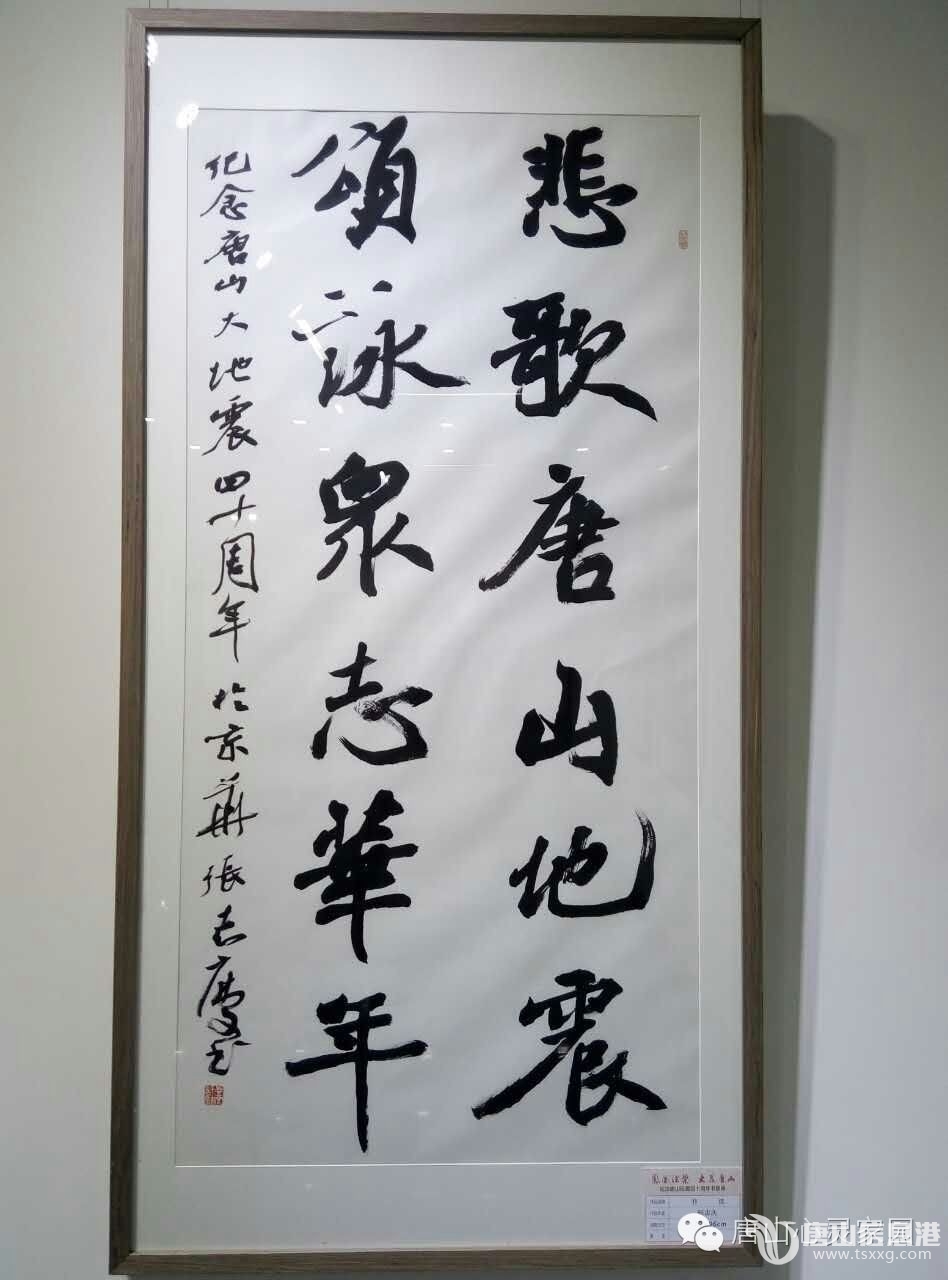 悲歌唐山地震
頌詠衆志華年
纪念唐山大地震四十周年於京華張志慶书
www.tsxxg.com